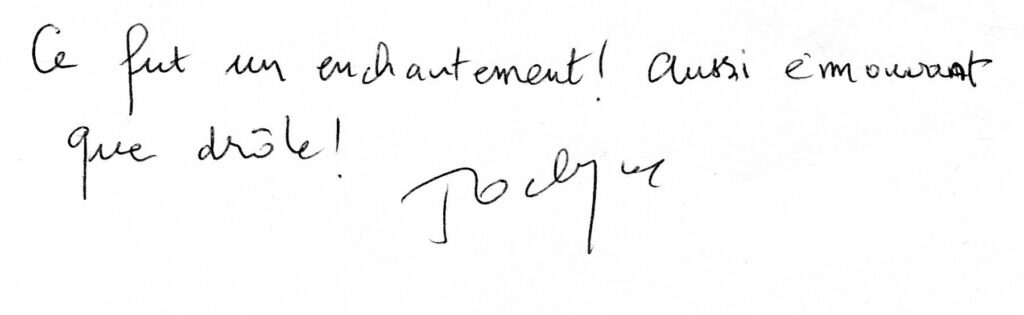 Ce fut un enchantement ! Aussi émouvant
que drôle !
Jocelyne